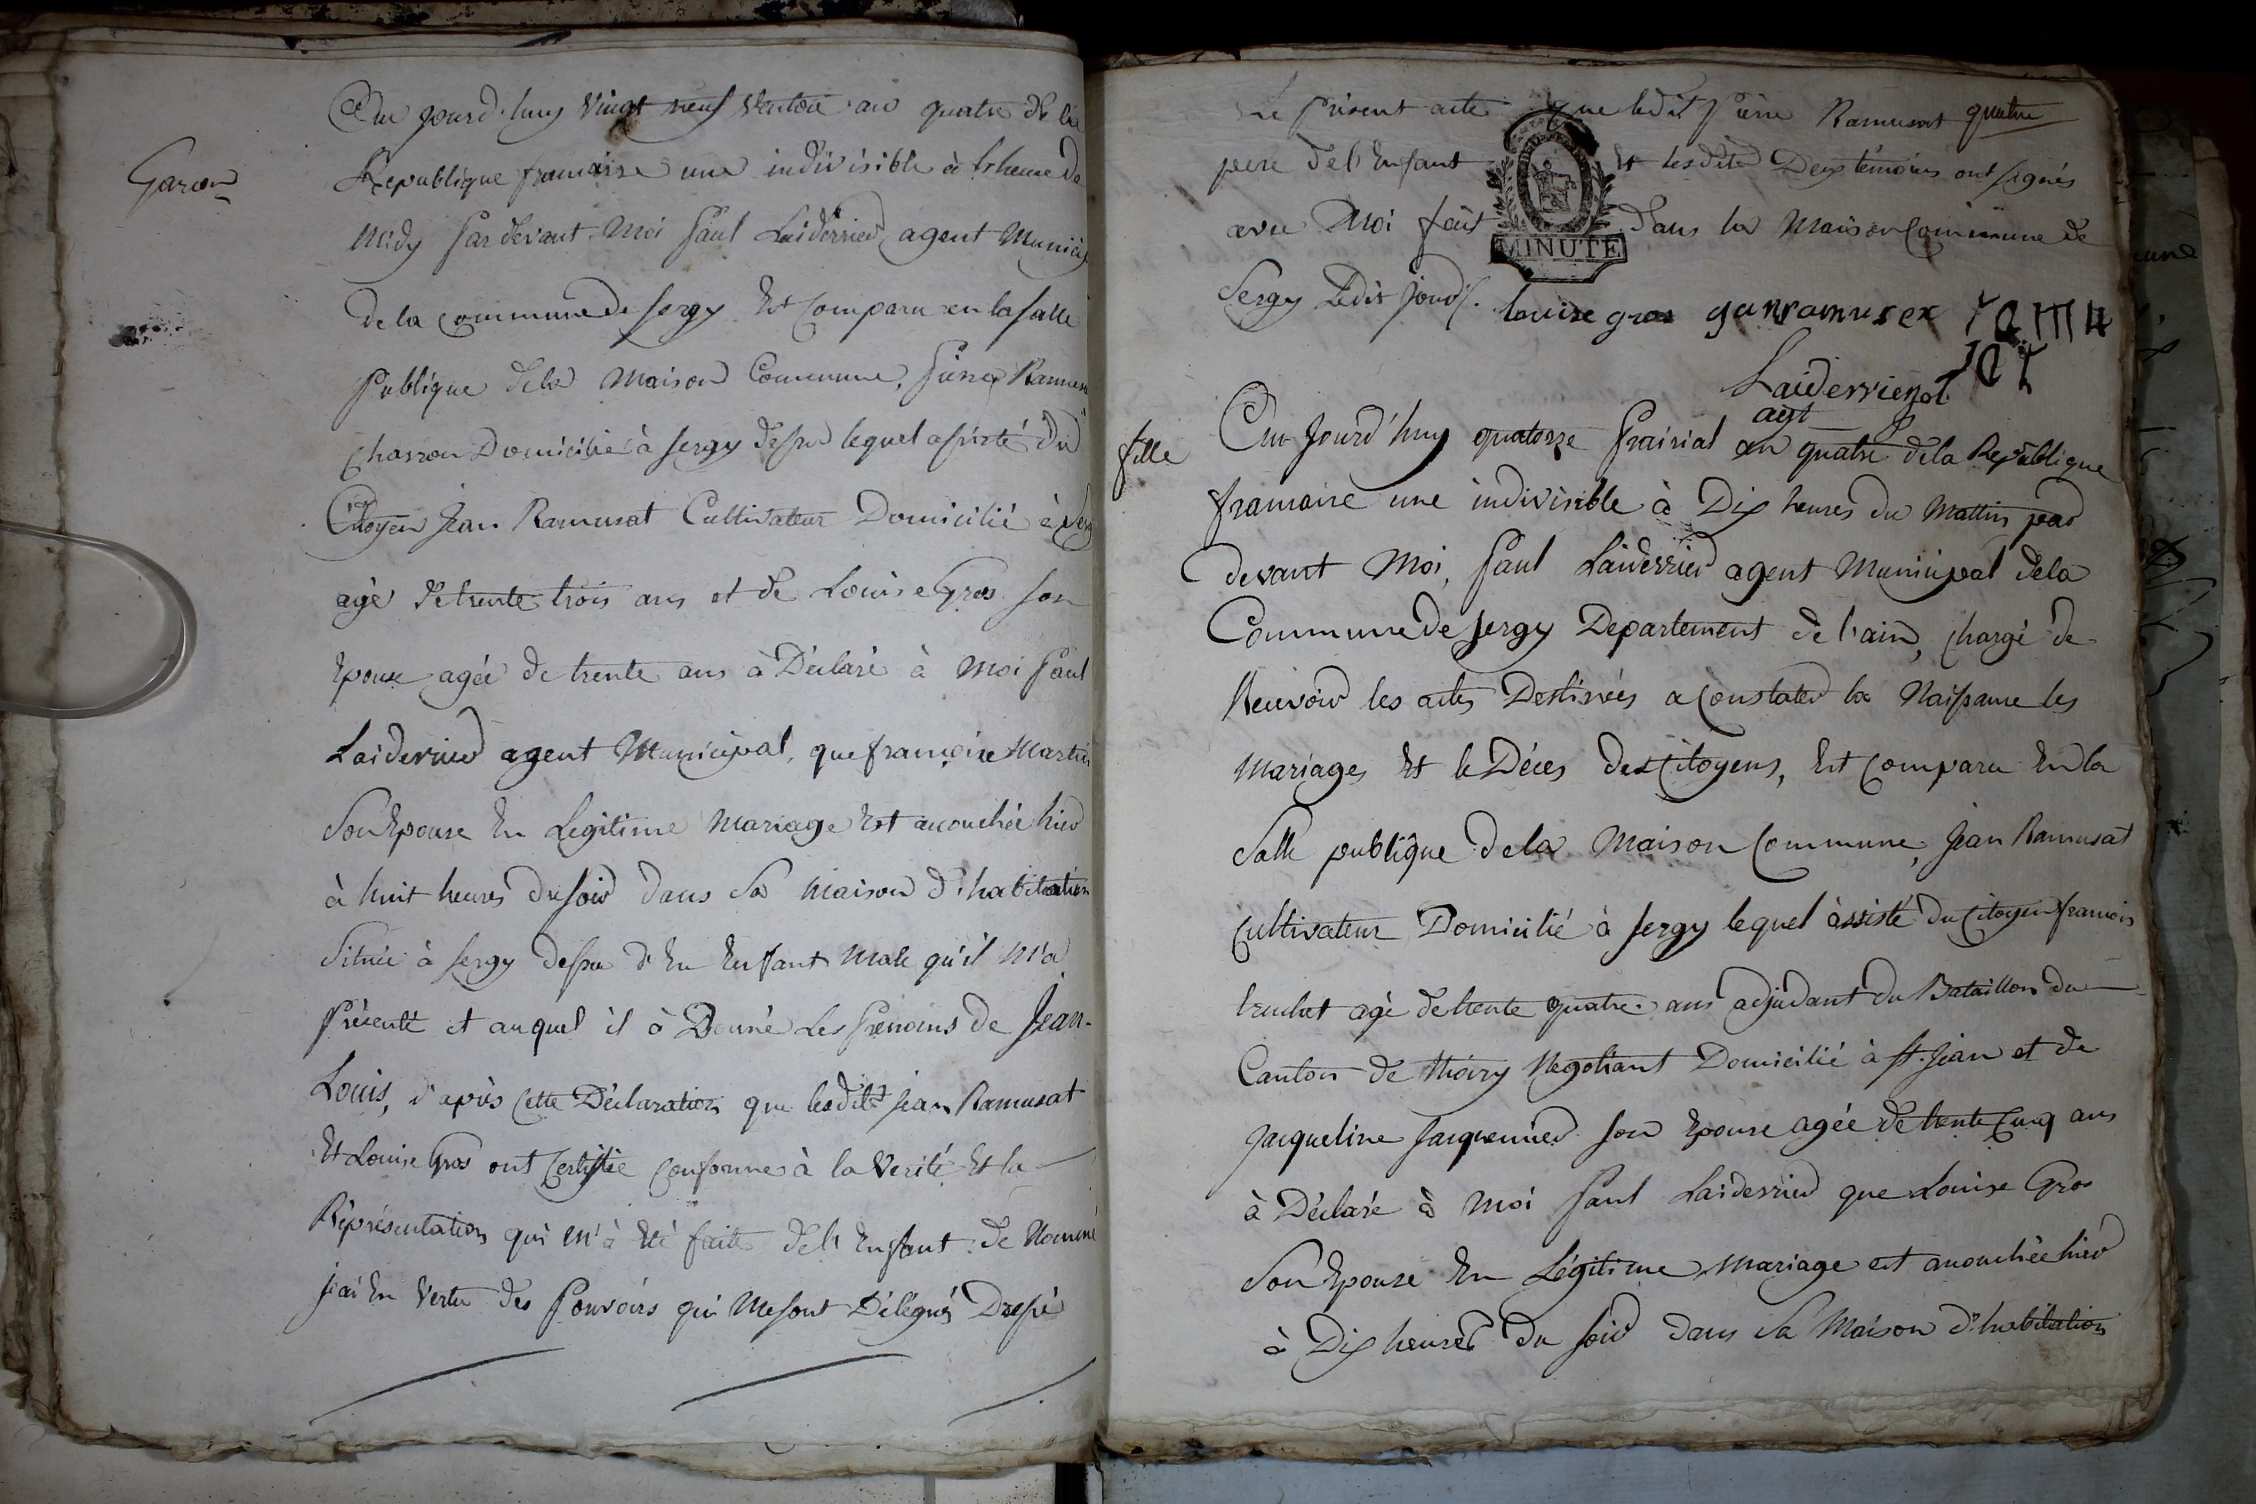 Garcon
Cem jourd'huy vingt neuf ventose an quatre de la
Republique francaise une indivisible à heure de
Midy pardevant Moi Paul Laiderrier agent Municip
de la commune de Sergy Est comparu en la salle
Publique de la Maison Commune, Pierre Ramusa
Charron Domicilié à Sergy dessu lequel assisté du
Citoyen Jean Ramusat Cultivateur Domicilié à Serg
agé de trente trois ans et de Louise Gros son
Epouse agée de trente ans à Déclaré à Moi Paul
Laiderrier agent Municipal, que françoise Martin
Son Epouse En Legitime Mariage Est acouchée hier
à huit heures du soir dans Sa Maison d'habitation
Située à Sergy dessu d'En Enfant Male qu'il M'a
Présenté et auquel il à Donné Les Prenoms de Jean-
Louis, d'après Cette Déclaration que lesdits Jean Ramusat
Et Louise Gros ont Certifié conforme à la Verité Et la
Réprésentation qui M'à Eté faite de l'Enfant de Nommé
J'ai En Vertu des Pouvoirs qui Me sont Délégués Dressé
Le Présent acte que ledit Pierre Ramusat quatre
pere de l'Enfant Et lesdits Deux temoins ont signés
avec Moi fait dans la Maison Commune de
MINUTE
Sergy Ledit Jour louise gros gan ramusex
Laiderrier
agt
fille
Cem Jourd'huy quatorze Prairial an quatre de la République
francaise une indivisible à Dix heures du Mattin par
devant Moi, Paul Laiderrier agent Municipal de la
Commune de Sergy Departement de l'ain, chargé de
Recevoir les actes Destinés a Constater la Naissance les
Mariages Et le Déces des Citoyens, Est Comparu En la
Salle publique de la Maison Commune, Jean Ramusat
Cultivateur Domicilié à Sergy lequel àssisté du Citoyen francois
agé de trente quatre ans adjudant du Bataillon du
Canton de Thoiry Negotiant Domicilié à St. Jean et de
Jacqueline son Epouse agée de trente Cinq ans
à Déclaré à Moi Paul Laiderrier que Louise Gros
Son Epouse En Légitime Mariage est acouchée hier
à Dix heures du soir dans Sa Maison d'habitation